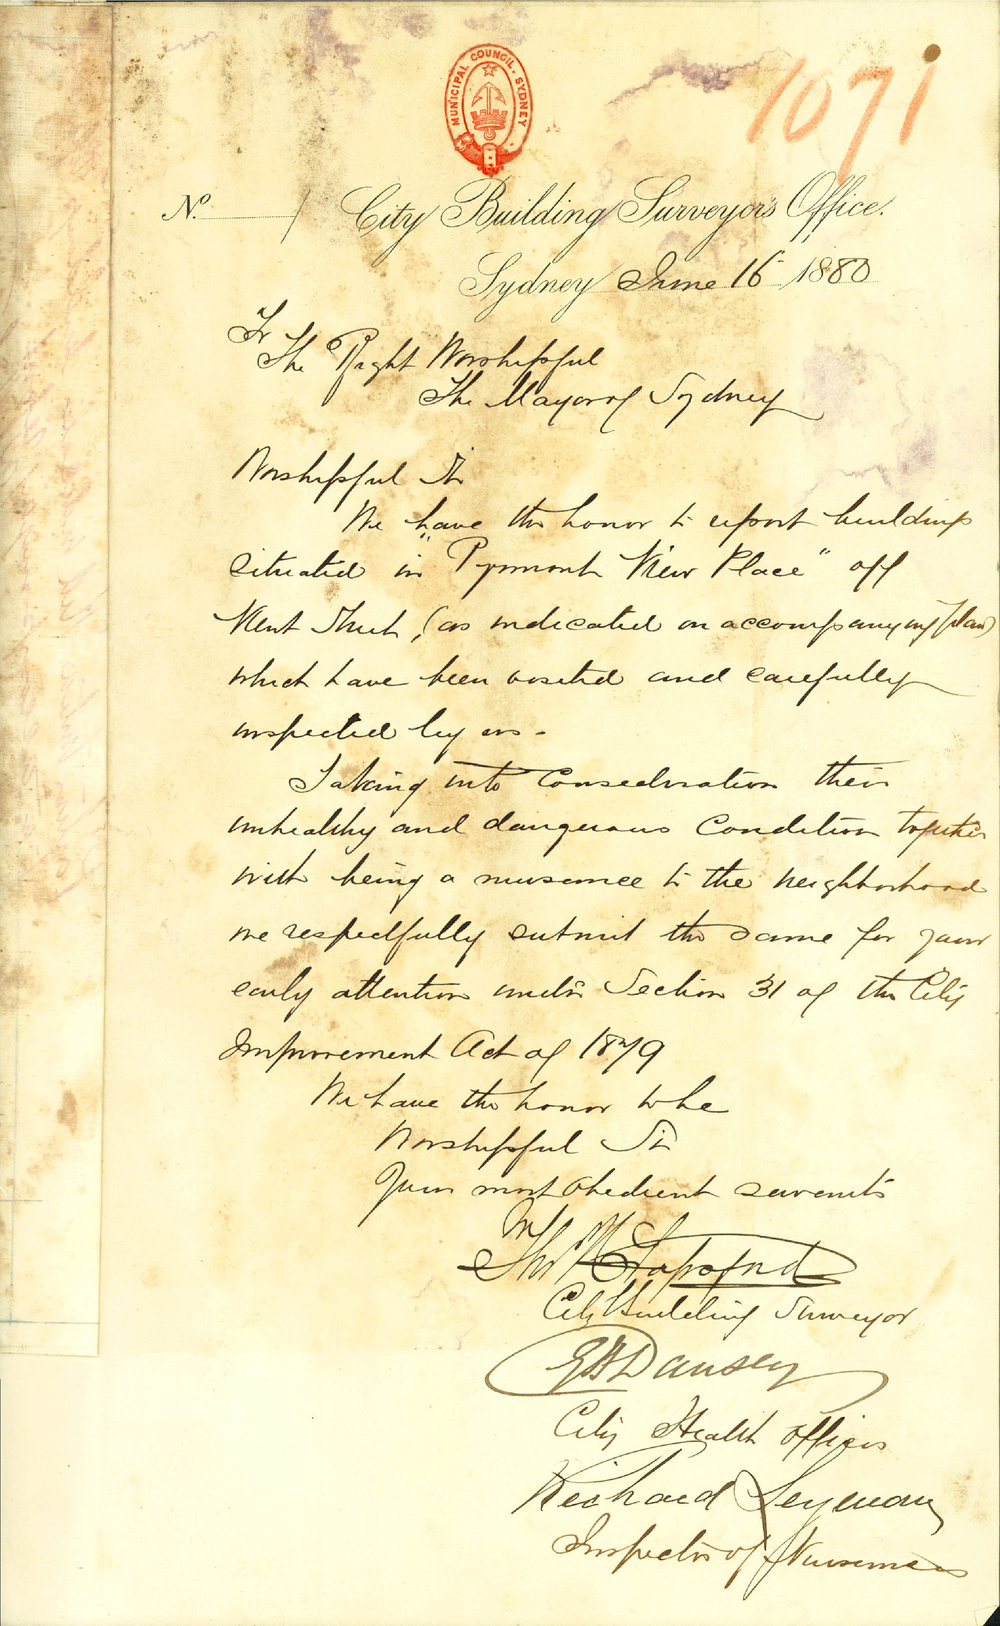 MUNICIPAL COUNCIL. SYDNEY
1071
No. / City Building Surveyor's Office.
Sydney June 16 1880
To
The Right Worshipful
The Mayor of Sydney
Worshipful Sir
We have the honor to report buildings
situated in "Pyrmont View Place" off
Kent Street, (as indicated on accompanying plan)
which have been visited and carefully
inspected by us -
Taking into Consideration their
unhealthy and dangerous Condition together
with being a nuisance to the neighborhood
we respectfully submit the same for your
early attention under Section 31 of the City
Improvement Act of 1879
We have the honor to be
Worshipful Sir
Your most obedient servants
Thos
City Building Surveyor
Dansey
City Health Officer
Richard Seymour
Inspector of Nuisances